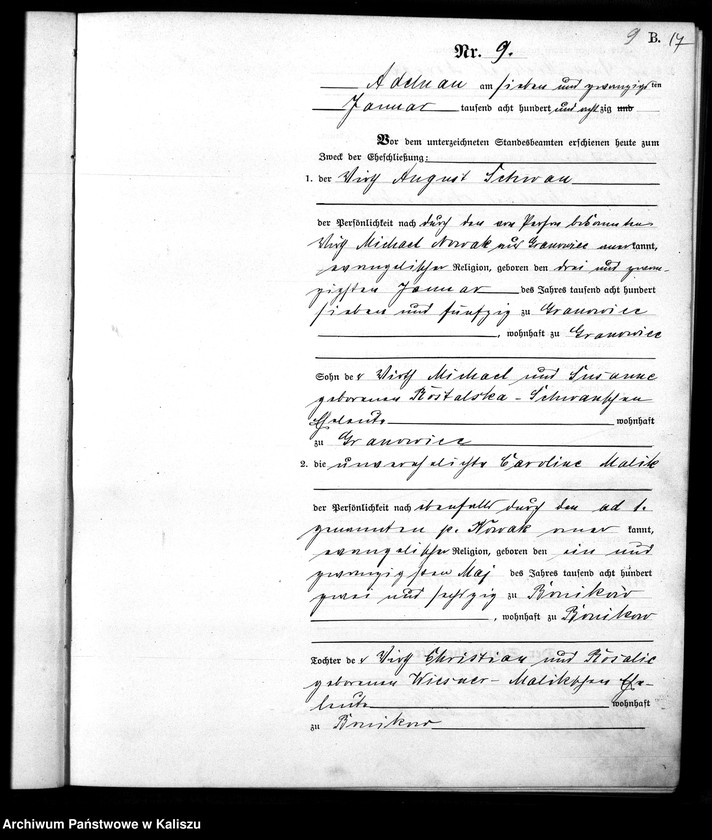 9 B. 17
Nr. 9.
Adelnau am sieben und zwanzigsten
Januar tausend acht hundert und acht zig und
Vor dem unterzeichneten Standesbeamten erschienen heute zum
Zweck der Eheschließung:
1. der Wirth August Schwan
der Persönlichkeit nach durch den von Person bekannten
Wirth Michael Nowak aus Granowiec anerkannt,
evangelischer Religion, geboren den drei und zwan-
zigsten Januar des Jahres tausend acht hundert
sieben und fünfzig zu Granowiec
, wohnhaft zu Granowiec
Sohn der Wirth Michael und Susanne
geborenen Rostalska - Schwanschen
Eheleute wohnhaft
zu Granowiec
2. die unverehelichte Caroline Malik
der Persönlichkeit nach ebenfalls durch den ad 1.
genannten p. Nowak aner kannt,
evangelischer Religion, geboren den ein und
zwanzigsten Maj des Jahres tausend acht hundert
zwei und sechzig zu Bonikow
, wohnhaft zu Bonikow
Tochter der Wirth Christian und Rosalie
geborenen Wiesner - Malikschen Ehe-
leute wohnhaft
zu Bonikow
Archiwum Państwowe w Kaliszu